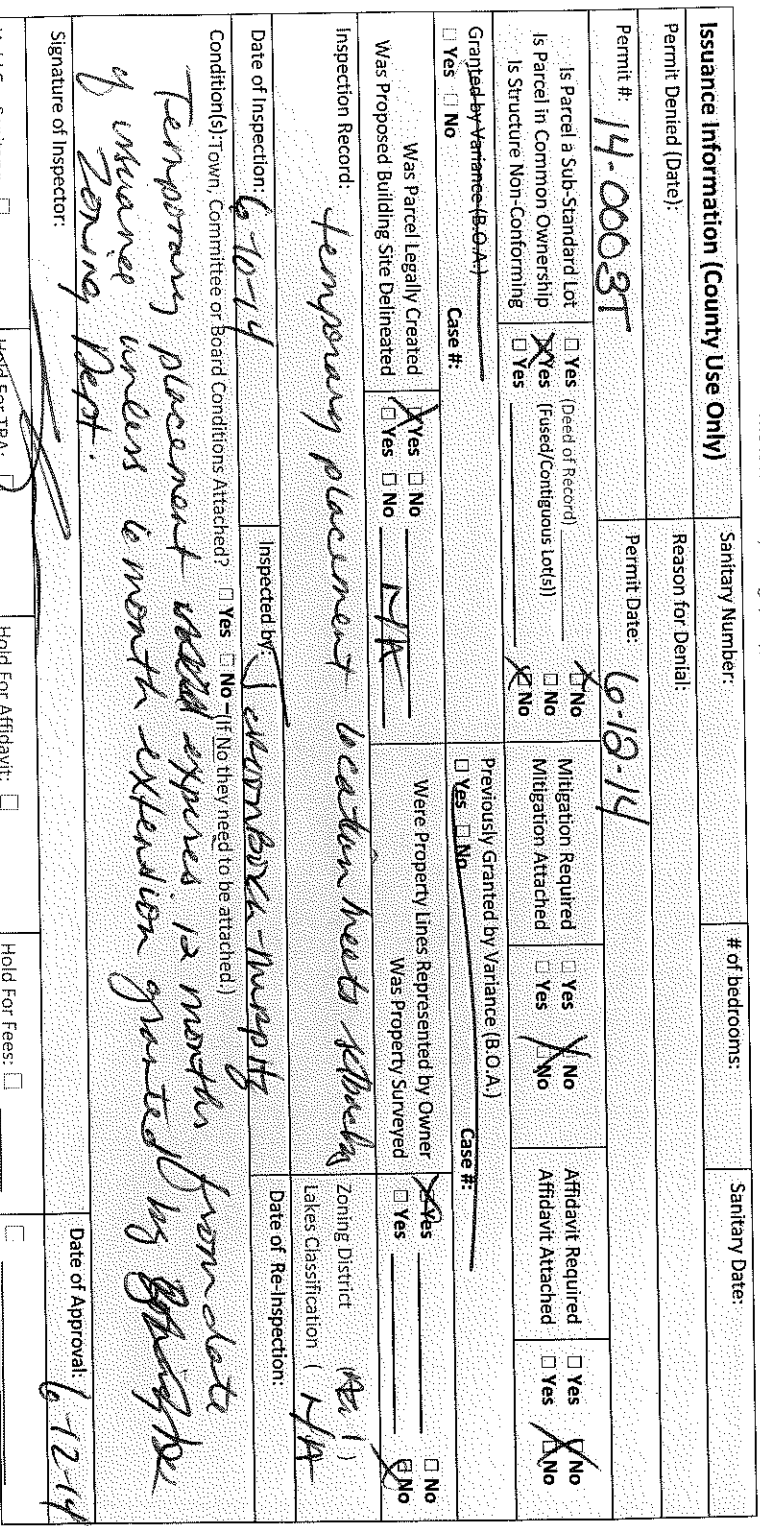 Issuance Information (County Use Only)
Sanitary Number:
# of bedrooms:
Sanitary Date:
Permit Denied (Date):
Reason for Denial:
Permit #: 14-0003T
Permit Date: 6-12-14
Is Parcel a Sub-Standard Lot
Is Parcel in Common Ownership
Is Structure Non-Conforming
☐ Yes (Deed of Record) ☒ No
☒ Yes (Fused/Contiguous Lot(s)) ☐ No
☐ Yes ☒ No
Mitigation Required ☐ Yes ☒ No
Mitigation Attached ☐ Yes ☒ No
Affidavit Required ☐ Yes ☒ No
Affidavit Attached ☐ Yes ☒ No
Granted by Variance (B.O.A.)
☐ Yes ☐ No Case #:
Previously Granted by Variance (B.O.A.)
☐ Yes ☐ No Case #:
Was Parcel Legally Created ☒ Yes ☐ No
Was Proposed Building Site Delineated ☐ Yes ☐ No N/A
Were Property Lines Represented by Owner ☒ Yes ☐ No
Was Property Surveyed ☐ Yes ☒ No
Inspection Record: temporary placement location meets setbacks
Zoning District ( )
Lakes Classification ( N/A
Date of Inspection: 6-10-14
Inspected by:
Date of Re-Inspection:
Condition(s): Town, Committee or Board Conditions Attached? ☐ Yes ☐ No – (If No they need to be attached.)
Temporary placement expires 12 months from date
of issuance unless 6 month extension granted by
Zoning Dept.
Signature of Inspector:
Date of Approval: 6-12-14
Hold For TBA: ☐
Hold For Affidavit: ☐
Hold For Fees: ☐
☐